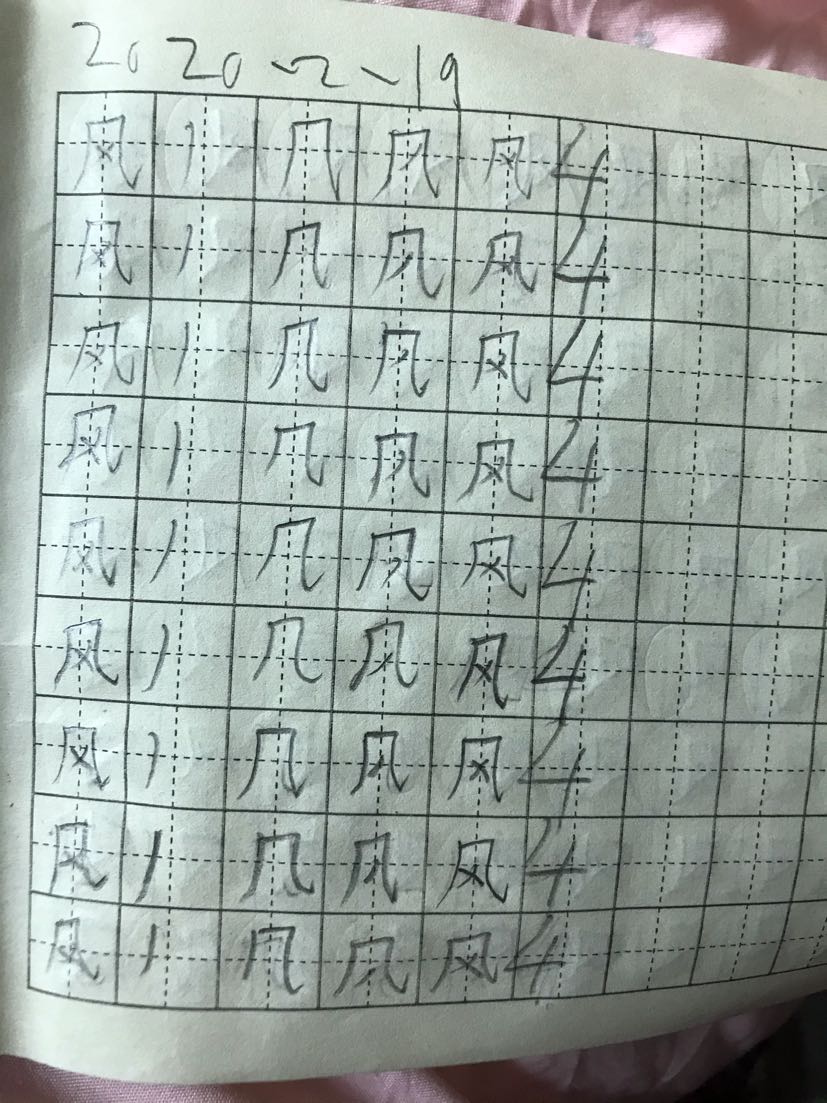 2020-2-19
风 丿 几 风 4
风 丿 几 风 4
风 丿 几 风 4
风 丿 几 风 4
风 丿 几 风 4
风 丿 几 风 4
风 丿 几 风 4
风 丿 几 风 4
风 丿 几 风 4